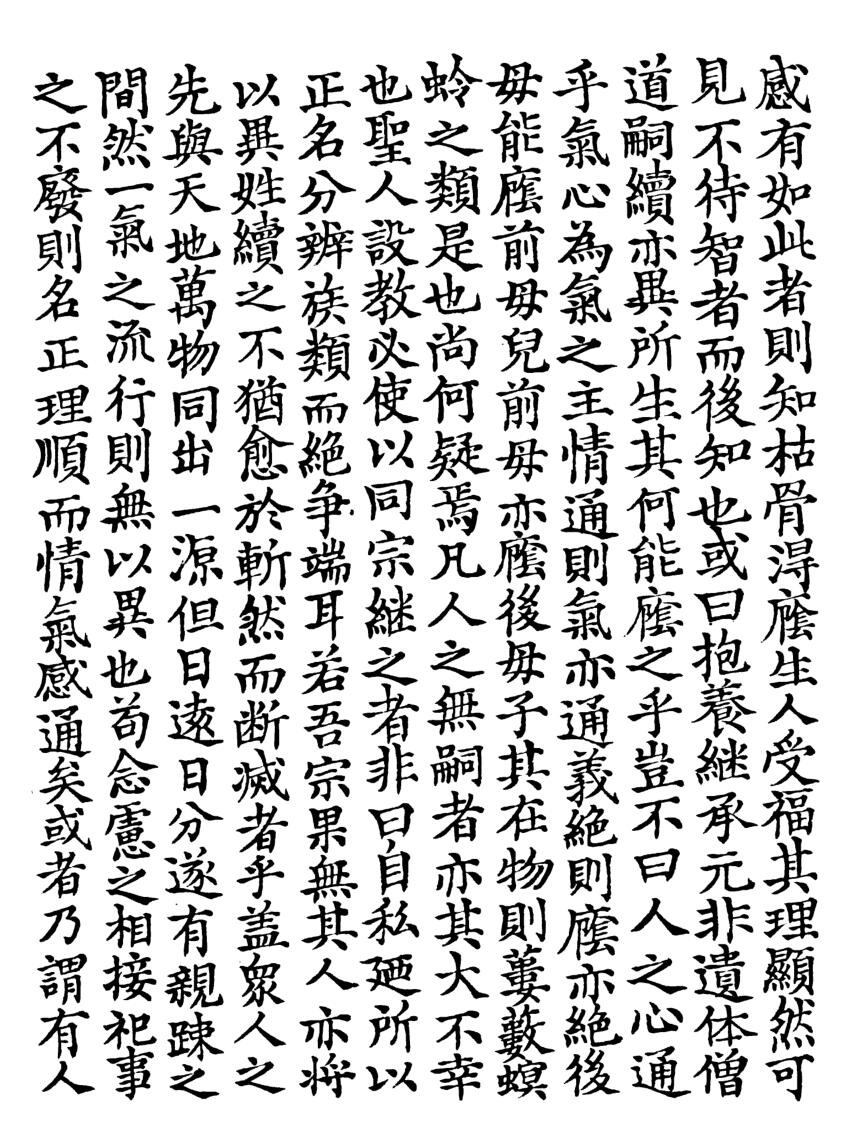 感有如此者則知枯骨淂䕃生人受福其理顯然可
見不待智者而後知也或曰抱養継承元非遺体僧
道嗣續亦異所生其何能䕃之乎豈不曰人之心通
乎氣心為氣之主情通則氣亦通義絶則䕃亦絶後
母能䕃前母兒前母亦䕃後母子其在物則蔞蔌螟
蛉之類是也尚何疑焉凡人之無嗣者亦其大不幸
也聖人設教必使以同宗継之者非曰自私廼所以
正名分辨族類而絶争端耳若吾宗果無其人亦将
以異姓續之不猶愈於斬然而断滅者乎盖衆人之
先與天地萬物同出一源但日遠日分遂有親踈之
間然一氣之流行則無以異也苟念慮之相接祀事
之不廢則名正理順而情氣感通矣或者乃謂有人